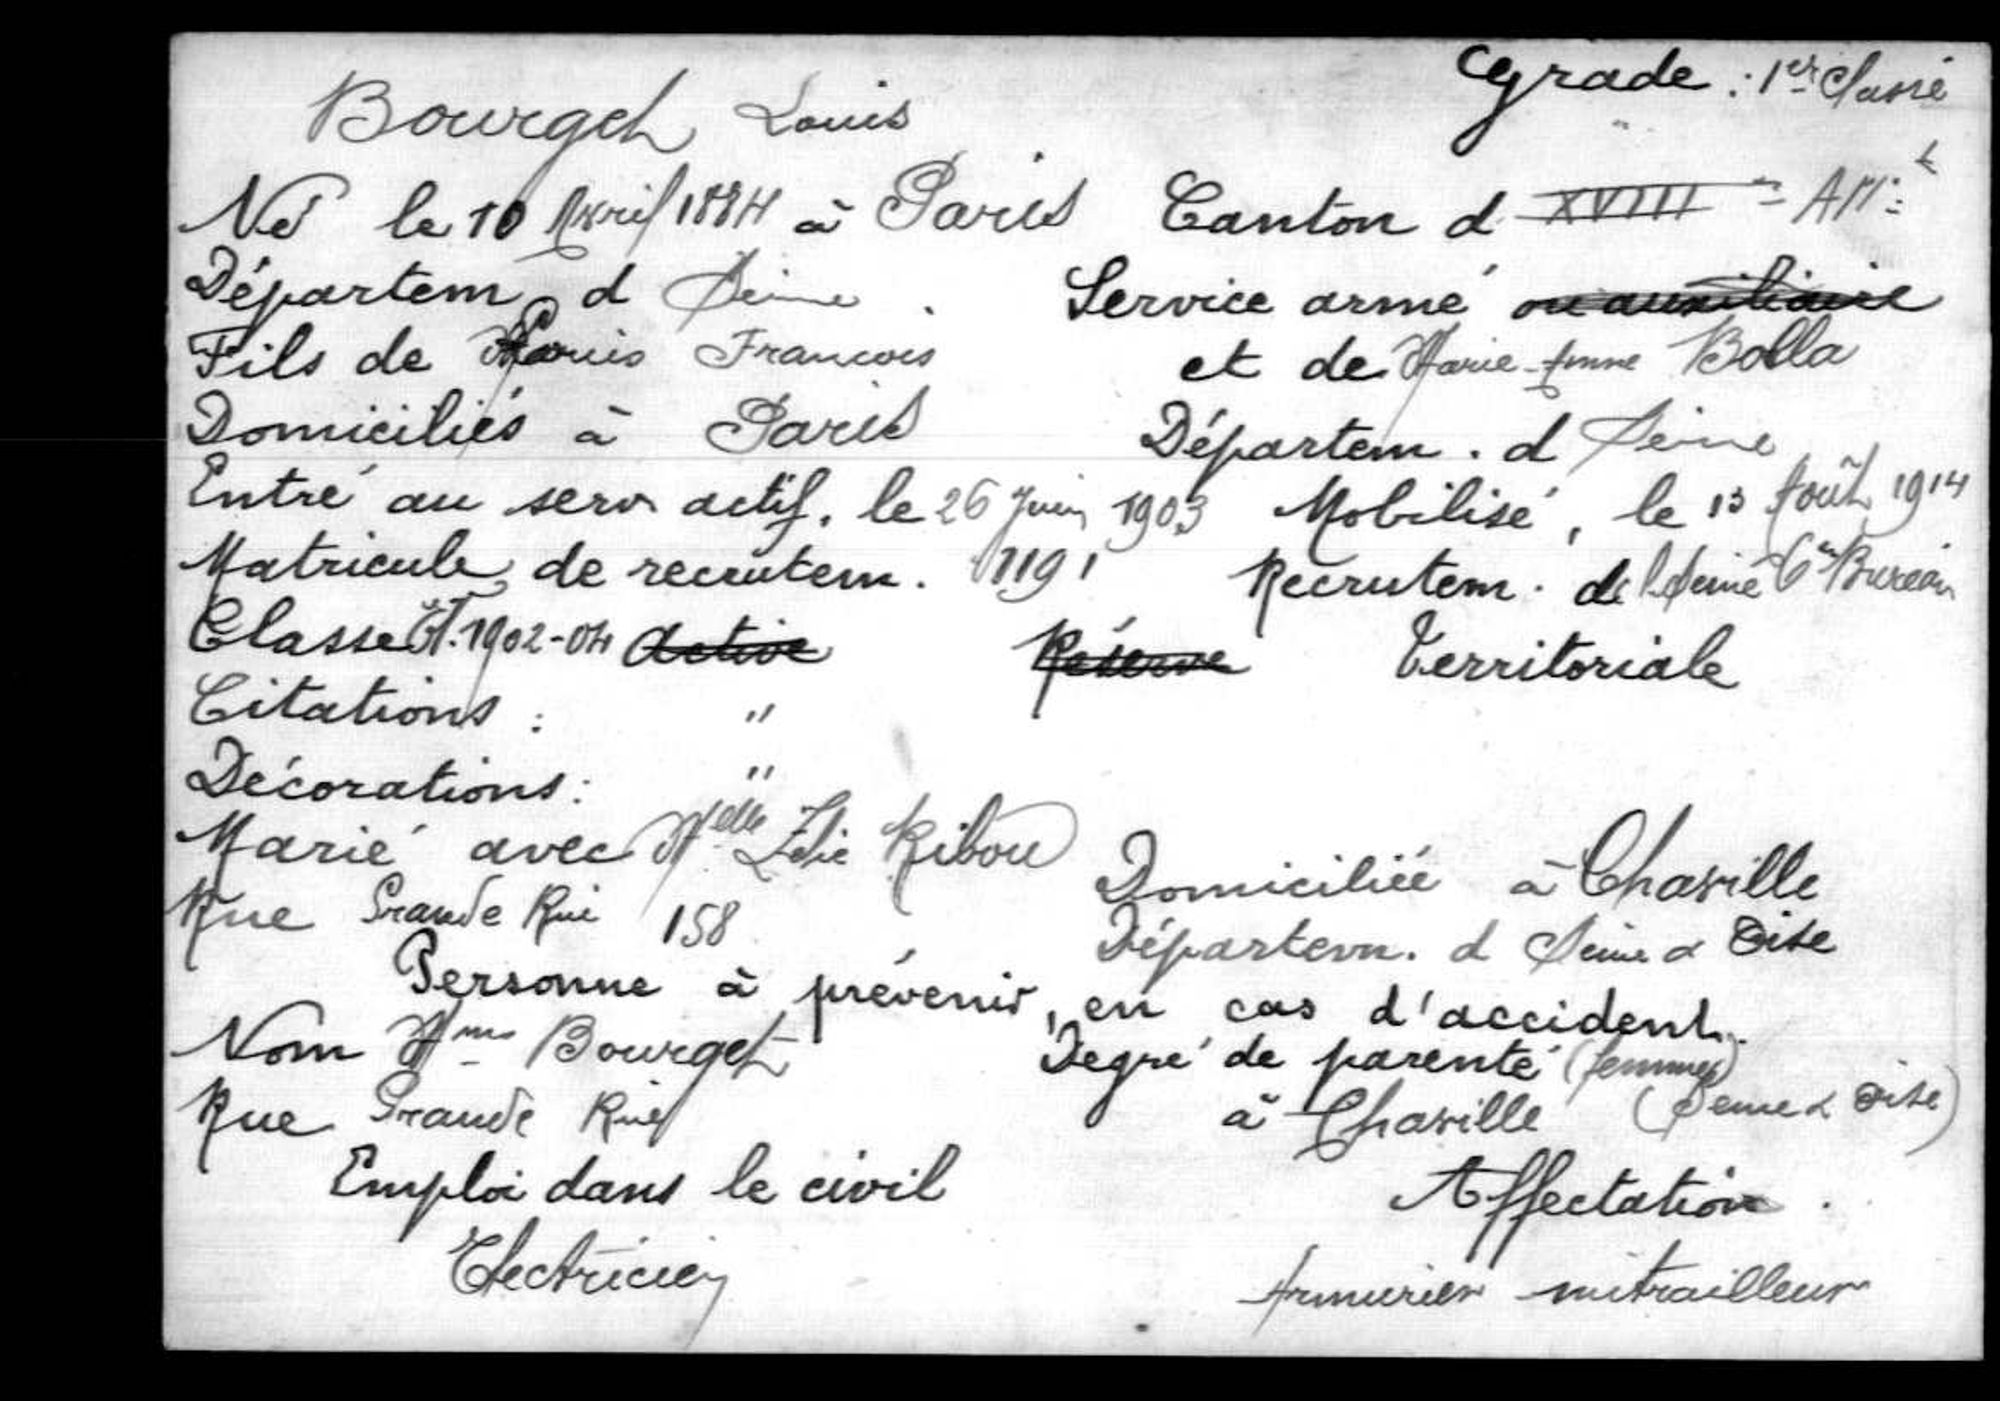 Grade : 1er Classe
Bourget Louis
Né le 10 Avril 1884 à Paris Canton d XVIII Art
Départem d Seine . Service armé ou auxiliaire
Fils de Louis Francois et de Marie-Anne Bolla
Domiciliés à Paris Départem . d Seine
Entré au serv actif, le 26 Juin 1903 Mobilisé, le 13 Août 1914
Matricule de recrutem . 1191 Recrutem . de Seine 6e Bureau
Classe 1902-04 Active Réserve Territoriale
Citations : "
Décorations : "
Marié avec Melle Zélie Ribou Domiciliée à Chaville
Rue Grande Rue 158 Départem . d Seine & Oise
Personne à prévenir, en cas d'accident.
Nom Mme Bourget Degré de parenté (femme)
Rue Grande Rue à Chaville (Seine & Oise)
Emploi dans le civil Affectation .
Electricien Armurier mitrailleur